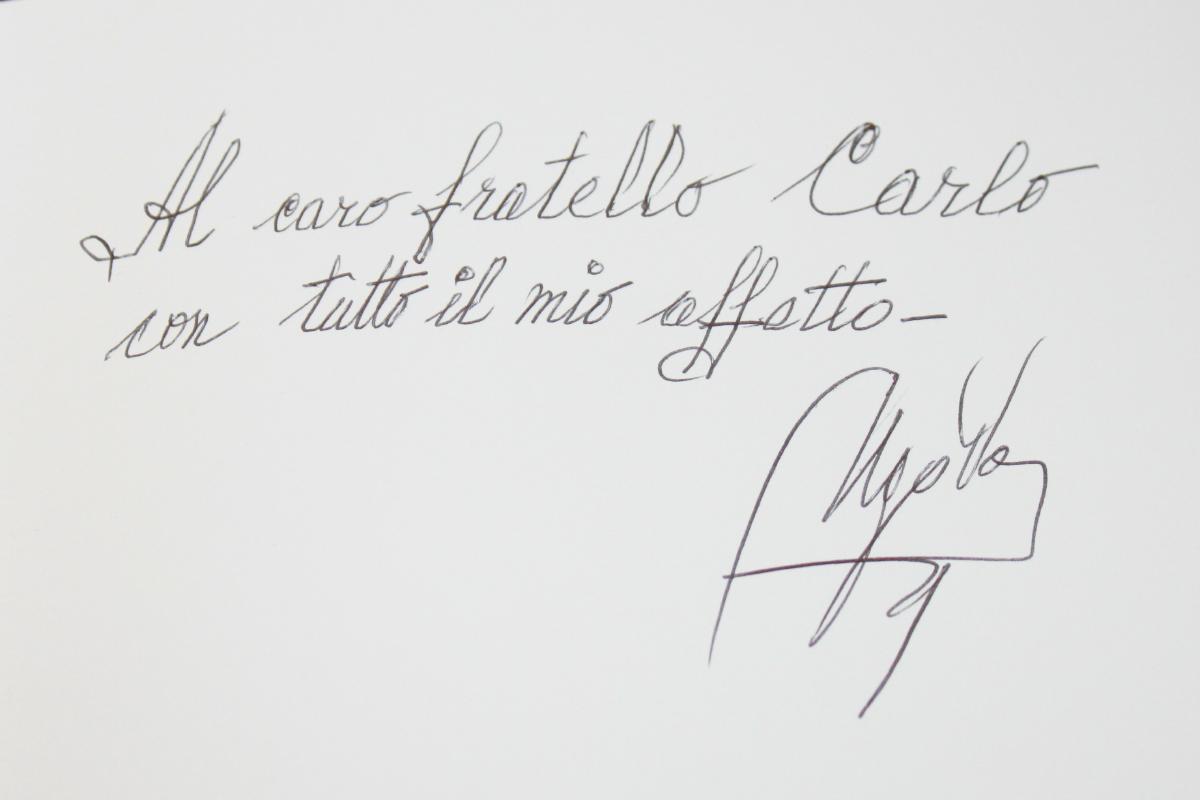 Al caro fratello Carlo
con tutto il mio affetto-